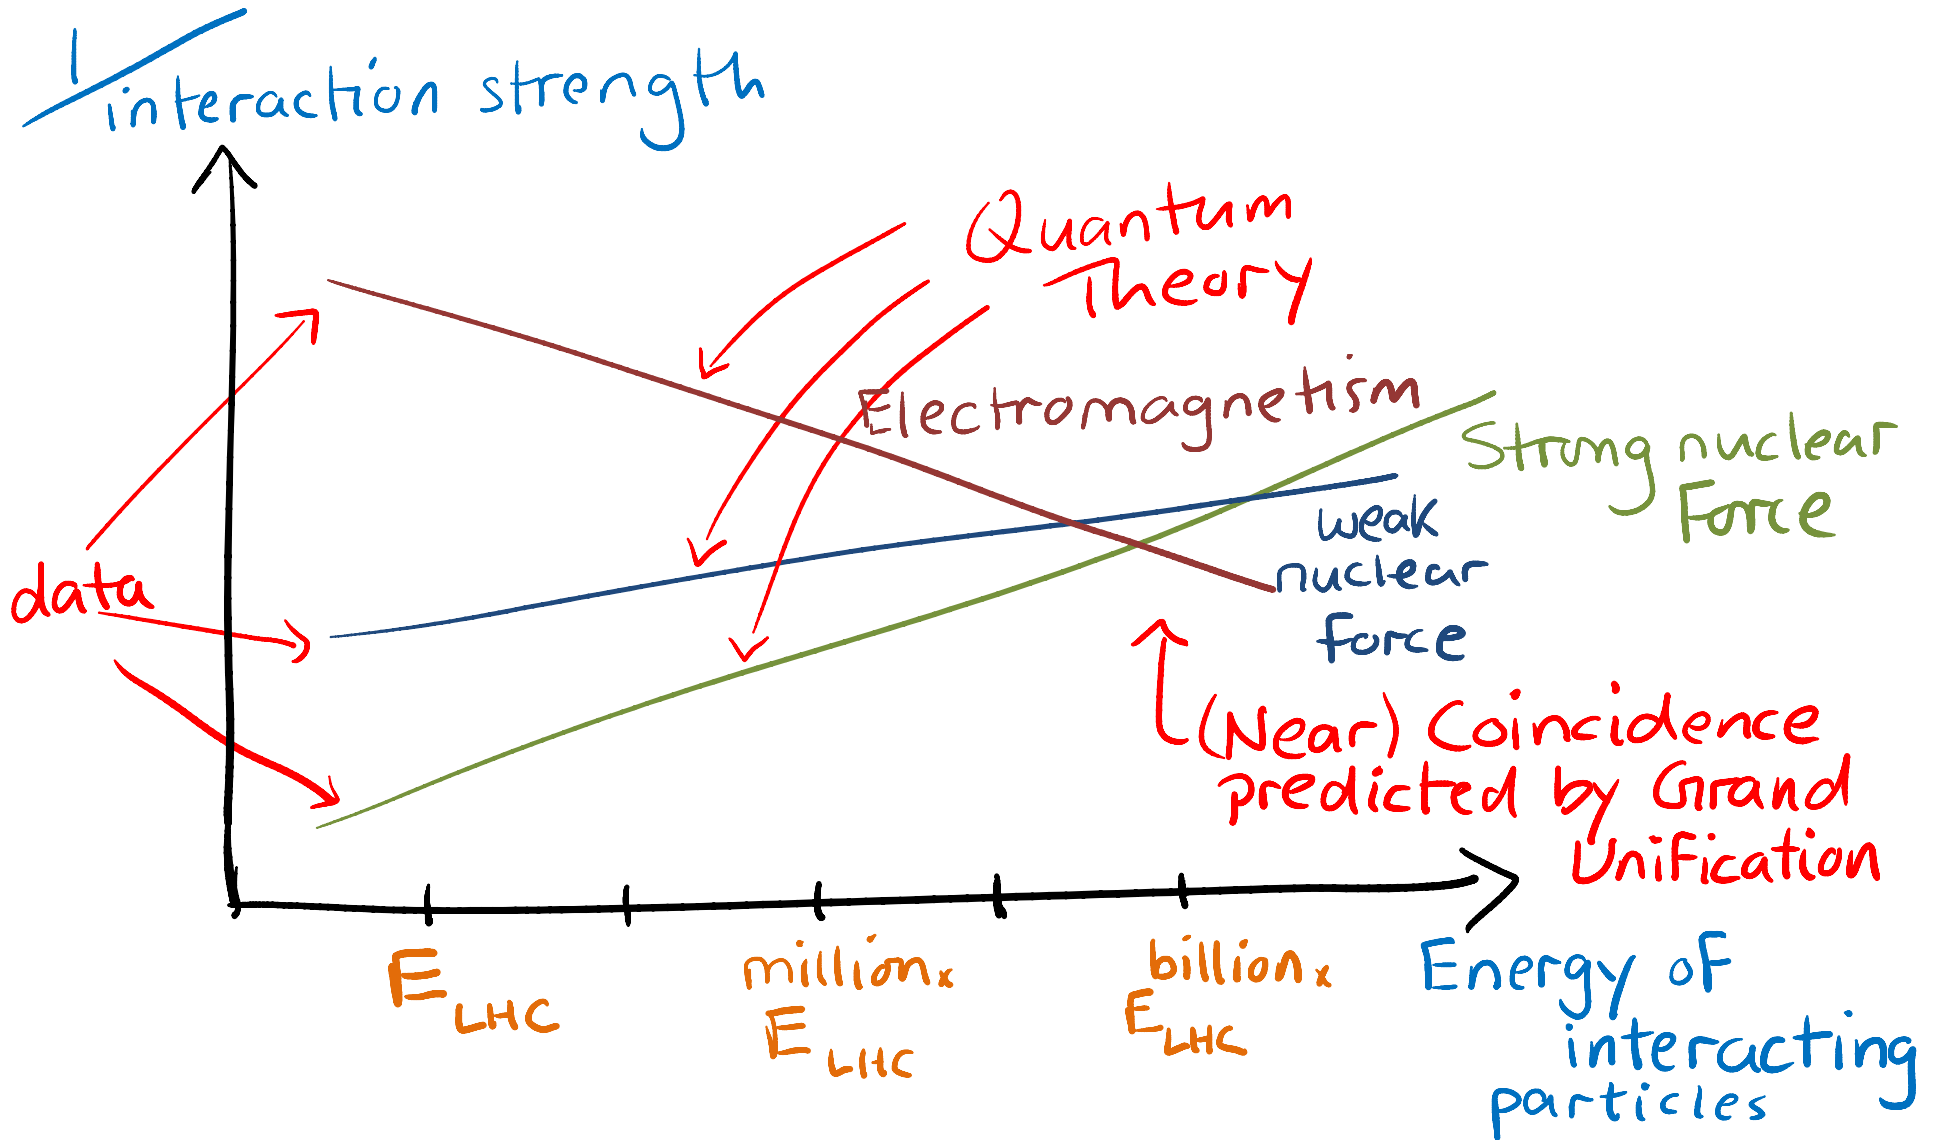 1/
interaction strength
Quantum
Theory
Electromagnetism
Strong nuclear
Force
weak
nuclear
force
data
(Near) Coincidence
predicted by Grand
Unification
E LHC
million x
E LHC
billion x
E LHC
Energy of
interacting
particles